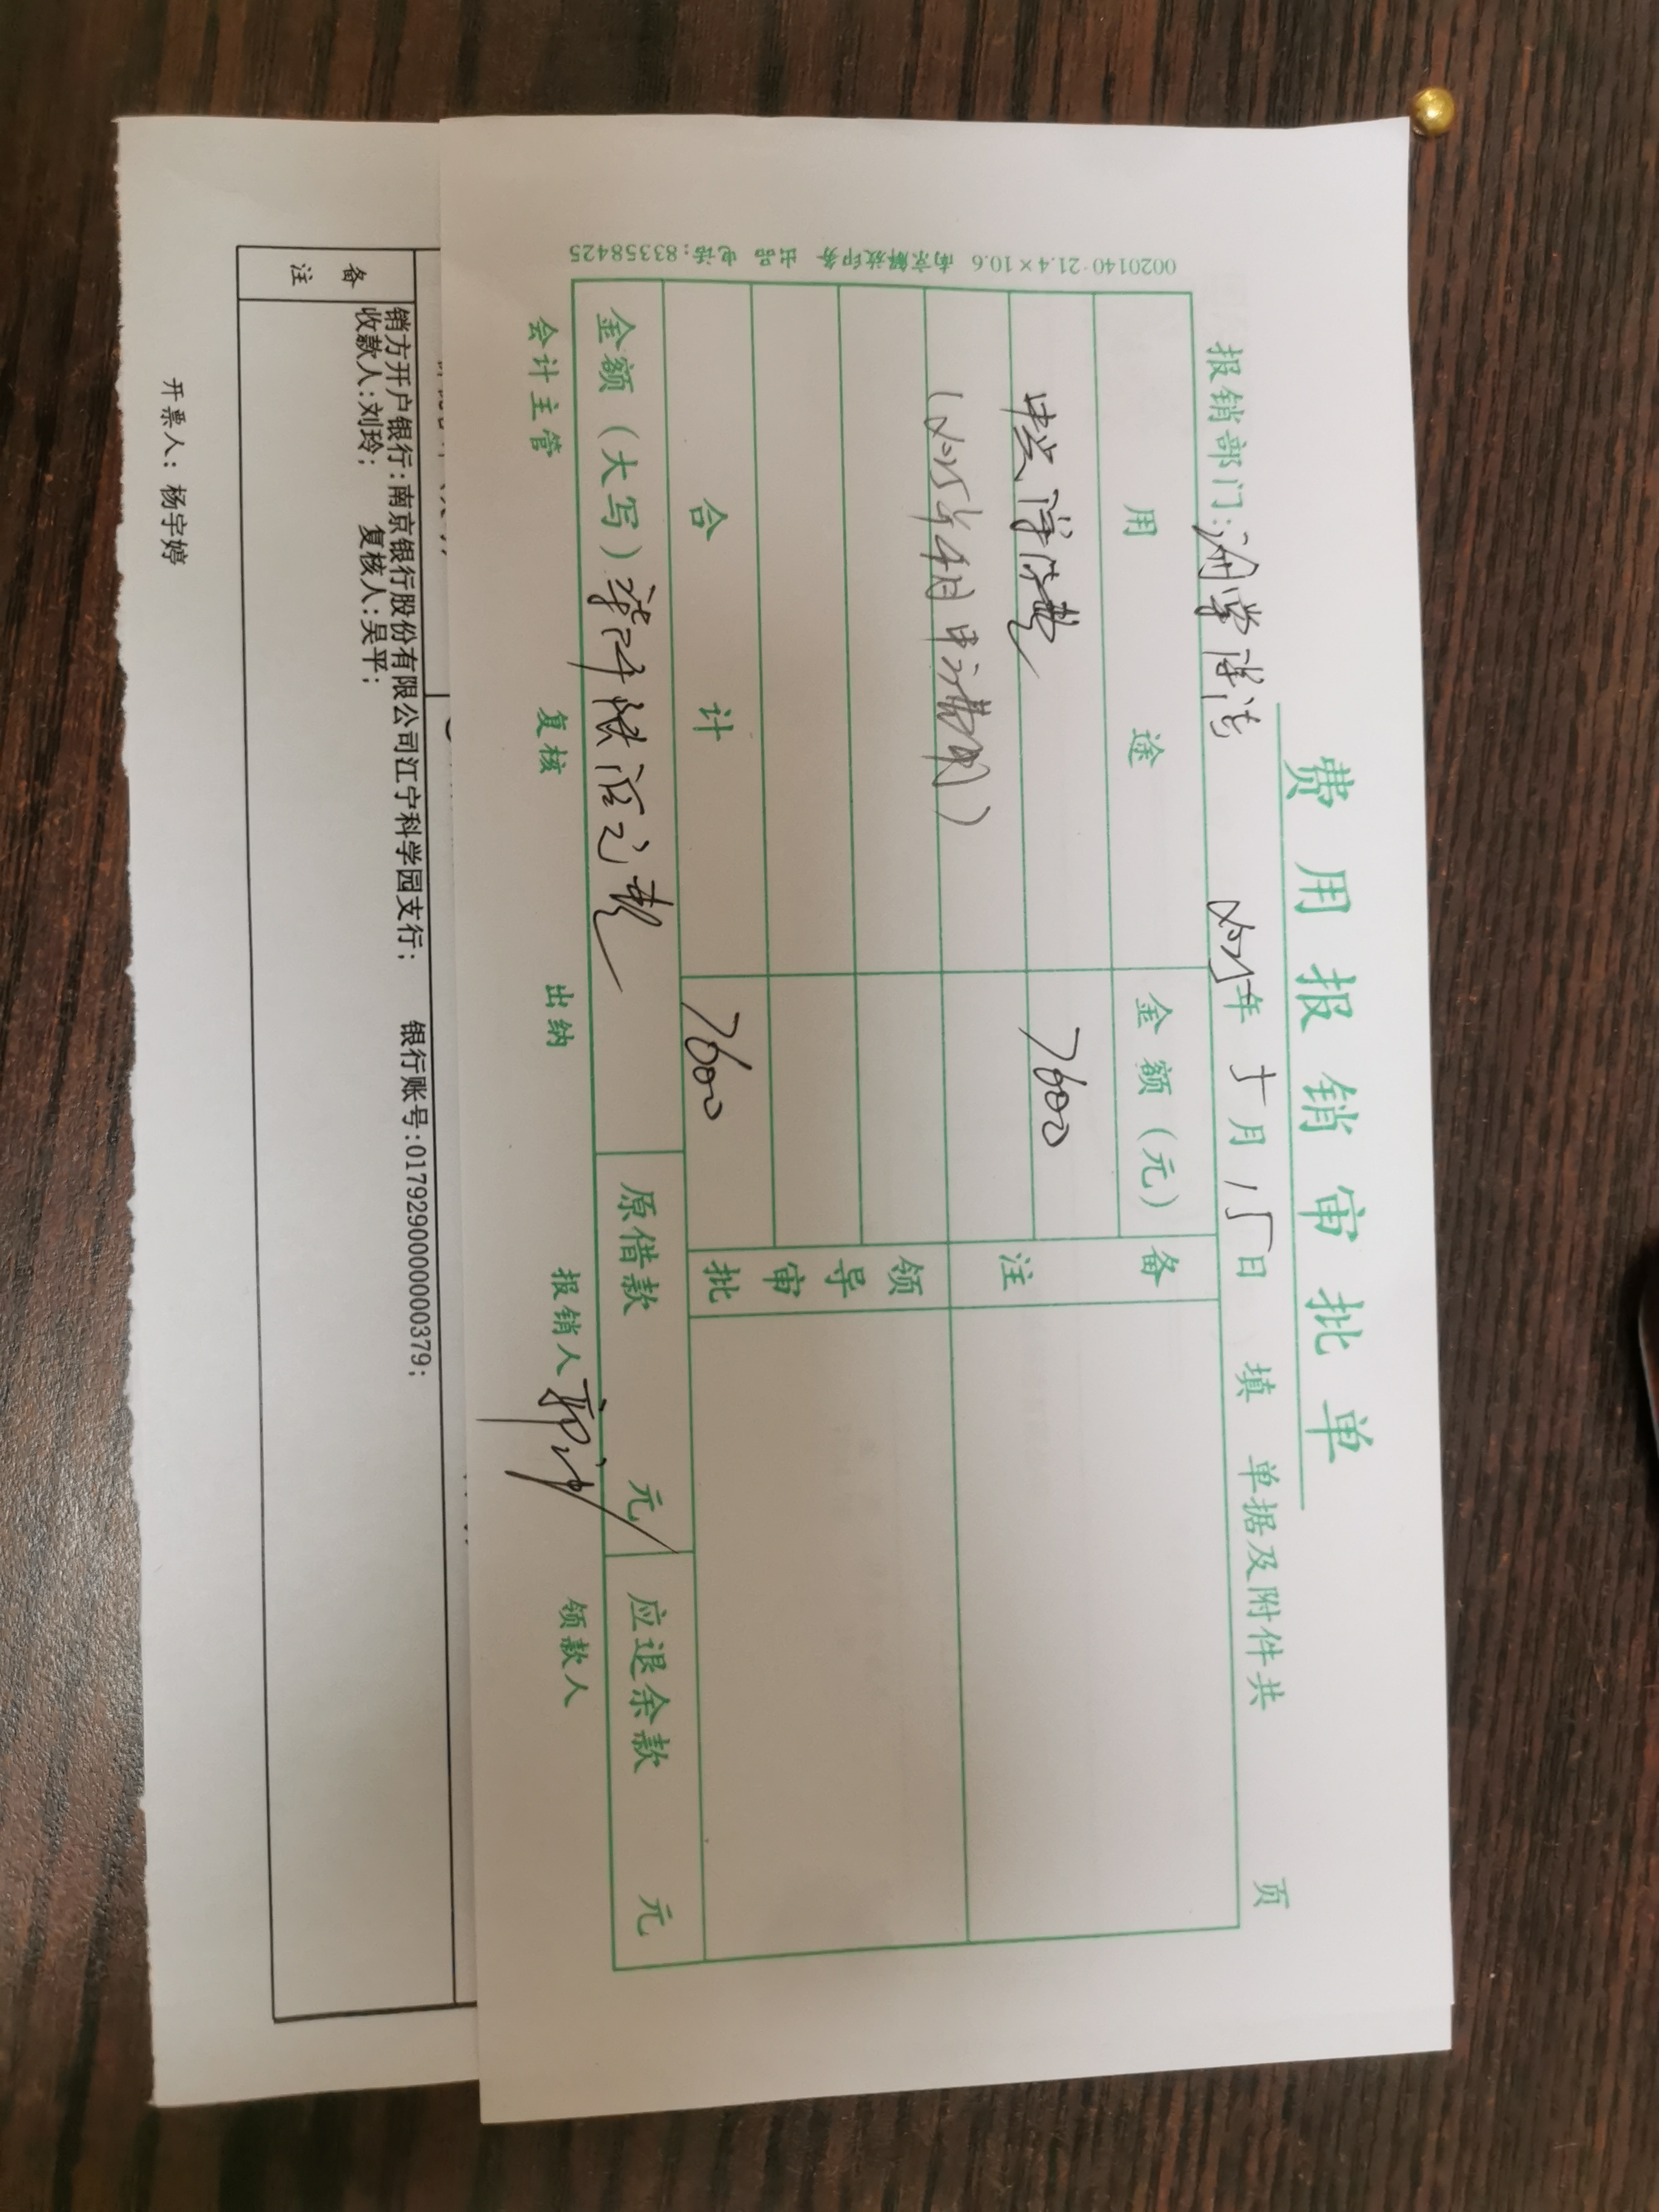 费用报销审批单
报销部门: 年 月 15 日 填 单据及附件共 页
用 途 金额(元) 备注
7600
(2025年4月申请)
领导审批
合 计 7600
金额(大写) 柒仟陆佰元整 原借款 元 应退余款 元
会计主管 复核 出纳 报销人 领款人
0020140-21.4×10.6 南京解放印务 出品 电话:83358425
备注
销方开户银行:南京银行股份有限公司江宁科学园支行; 银行账号:0179290000000379;
收款人:刘玲; 复核人:吴平;
开票人: 杨宇婷